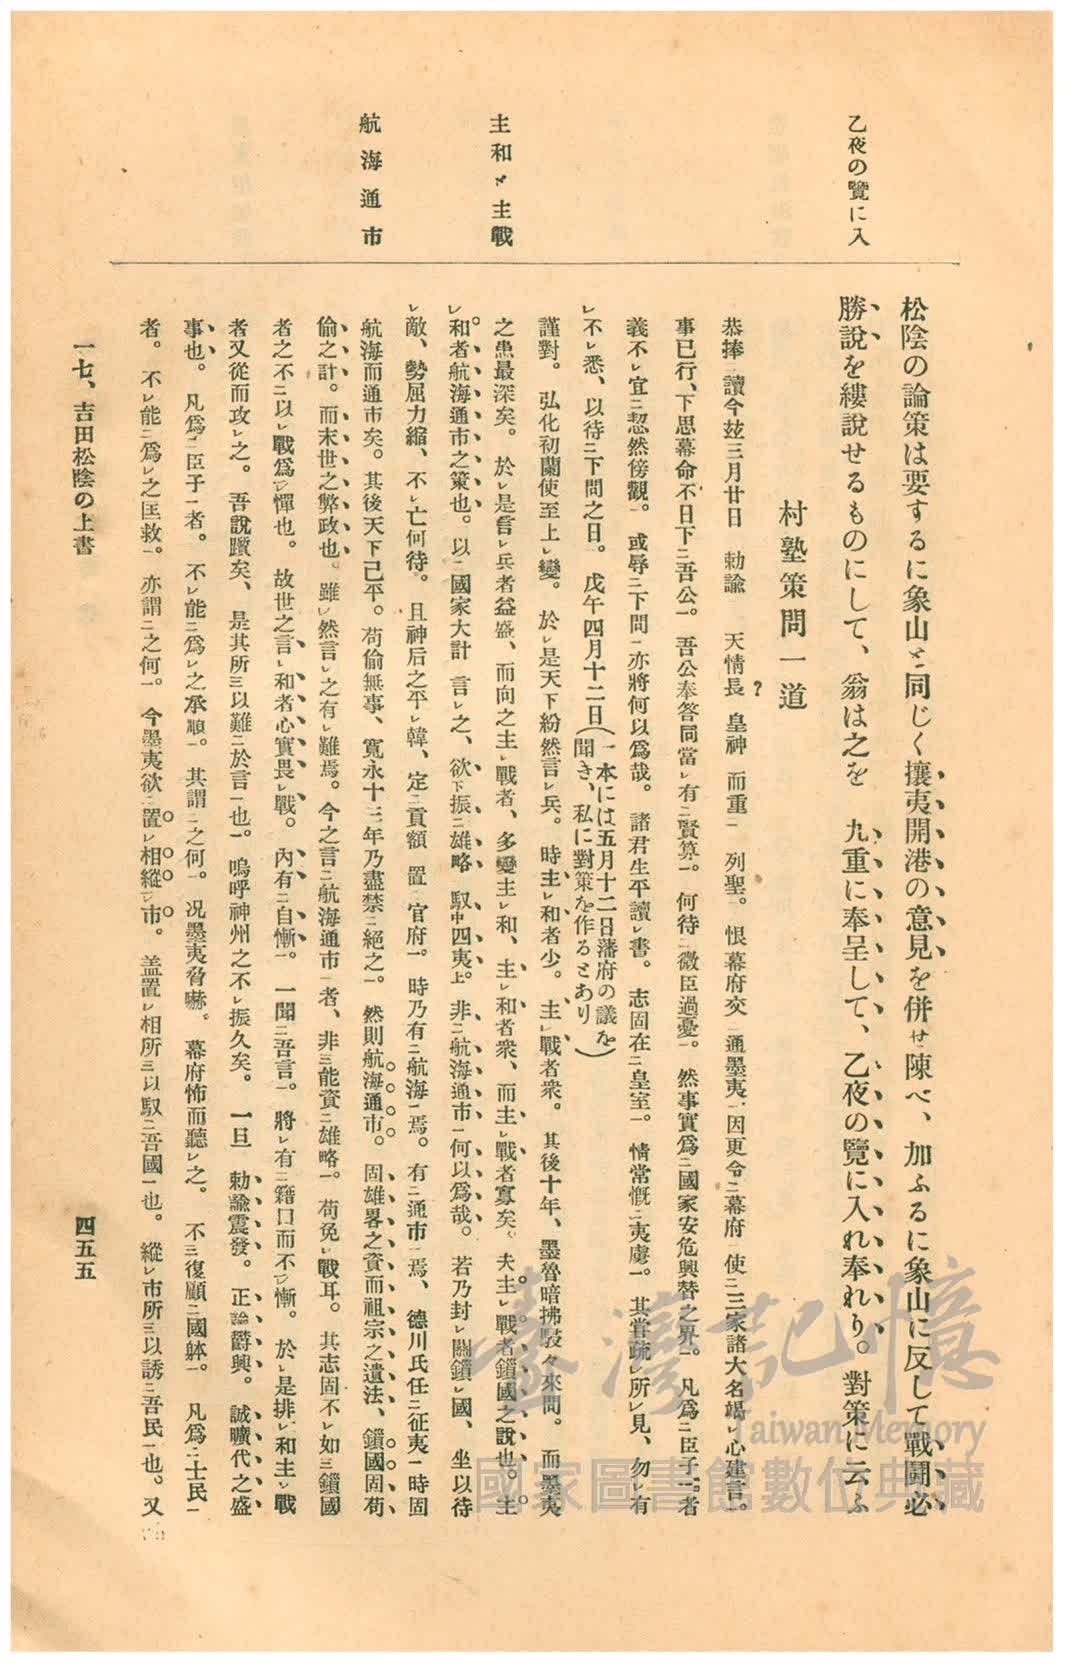 乙夜の覽に入
主和と主戰
航海通市
松陰の論策は要するに象山と同じく攘夷開港の意見を併せ陳べ、加ふるに象山に反して戰鬪必
勝說を縷說せるものにして、翁は之を 九重に奉呈して、乙夜の覽に入れ奉れり。對策に云ふ
村塾策問一道
恭捧讀今玆三月廿日 勅諭 天情長 皇神 而重二 列聖。恨幕府交 通墨夷、因更令二幕府 使二三家諸大名竭レ心建言一。
事已行、下思幕命不日下二吾公一。吾公奉答同當レ有二賢算一。何待二微臣過憂一。然事實爲二國家安危興替之界一。凡爲二臣子一者
義不レ宜二恝然傍觀一。或辱二下問一亦將何以爲哉。諸君生平讀レ書。志固在二皇室一。情常慨二夷虜一。其嘗疏レ所レ見、勿レ有
レ不レ悉、以待二下問之日。戊午四月十二日(一本には五月十二日藩府の議を聞き、私に對策を作るとあり)
謹對。弘化初蘭使至上レ變。於レ是天下紛然言レ兵。時主レ和者少。主レ戰者衆。其後十年、墨魯暗拂駸々來問。而墨夷
之患最深矣。於レ是言レ兵者益盛、而向之主レ戰者、多變主レ和、主レ和者衆、而主レ戰者寡矣。夫主レ戰者鎖國之說也。主
レ和者航海通市之策也。以二國家大計 言レ之、欲下振二雄略 馭中四夷。上 非二航海通市一何以爲哉。若乃封レ關鎖レ國、坐以待
レ敵、勢屈力縮、不レ亡何待。且神后之平レ韓、定二貢額 置二官府一。時乃有二航海一焉。有二通市一焉、德川氏任二征夷一時固
航海而通市矣。其後天下已平。苟偷無事、寬永十三年乃盡禁二絕之一。然則航海通市。固雄畧之資而祖宗之遺法、鎖國固苟
偷之計。而末世之弊政也。雖レ然言レ之有レ難焉。今之言二航海通市一者、非三能資二雄略一。苟免レ戰耳。其志固不レ如三鎖國
者之不二以レ戰爲一レ憚也。故世之言レ和者心實畏レ戰。內有二自慚一。一聞二吾言一。將レ有二籍口而不一レ慚。於レ是排レ和主レ戰
者又從而攻レ之。吾說躓矣、是其所三以難二於言一也。嗚呼神州之不レ振久矣。一旦 勅諭震發。正論欝興。誠曠代之盛
事也。凡爲二臣子一者。不レ能二爲レ之承順一。其謂二之何一。况墨夷脅嚇。幕府怖而聽レ之。不三復顧二國躰一。凡爲二士民一
者。不レ能二爲レ之匡救一。亦謂二之何一。今墨夷欲三置レ相縱レ市。盖置レ相所三以馭二吾國一也。縱レ市所三以誘二吾民一也。又
一七、吉田松陰の上書
四五五
臺灣記憶
Taiwan Memory
國家圖書館數位典藏